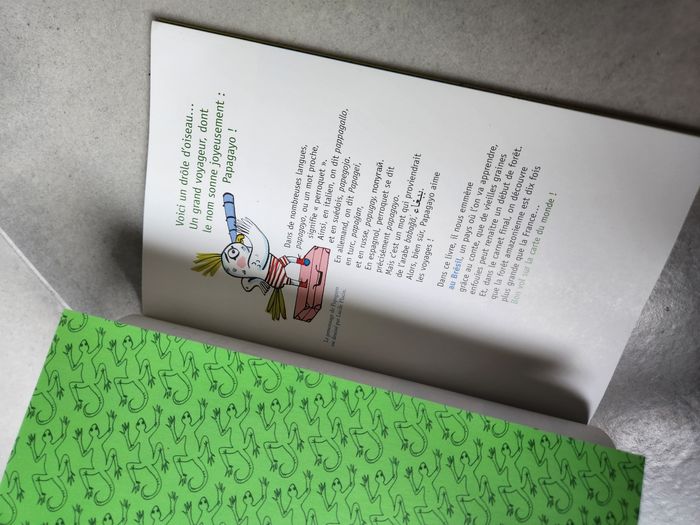 Voici un drôle d'oiseau...
Un grand voyageur, dont
le nom sonne joyeusement :
Papagayo !
Dans de nombreuses langues,
papagayo, ou un mot proche,
signifie « perroquet ».
Ainsi, en italien, on dit pappagallo,
et en suédois, papegoja.
En allemand, on dit Papagei,
en turc, papağan,
et en russe, popugay, попугай.
En espagnol, perroquet se dit
précisément papagayo.
Mais c'est un mot qui proviendrait
de l'arabe babaġā, ببغاء.
Alors, bien sûr, Papagayo aime
les voyages !
Le personnage de Papagayo
Dans ce livre, il nous emmène
au Brésil, un pays où l'on va apprendre,
grâce au conte, que de vieilles graines
enfouies peut renaître un début de forêt.
Et, dans le carnet final, on découvre
que la forêt amazonienne est dix fois
plus grande que la France...
Bon vol sur la carte du monde !